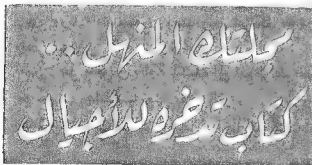 مجلتك المنهل..
كتاب تدخره للأجيال